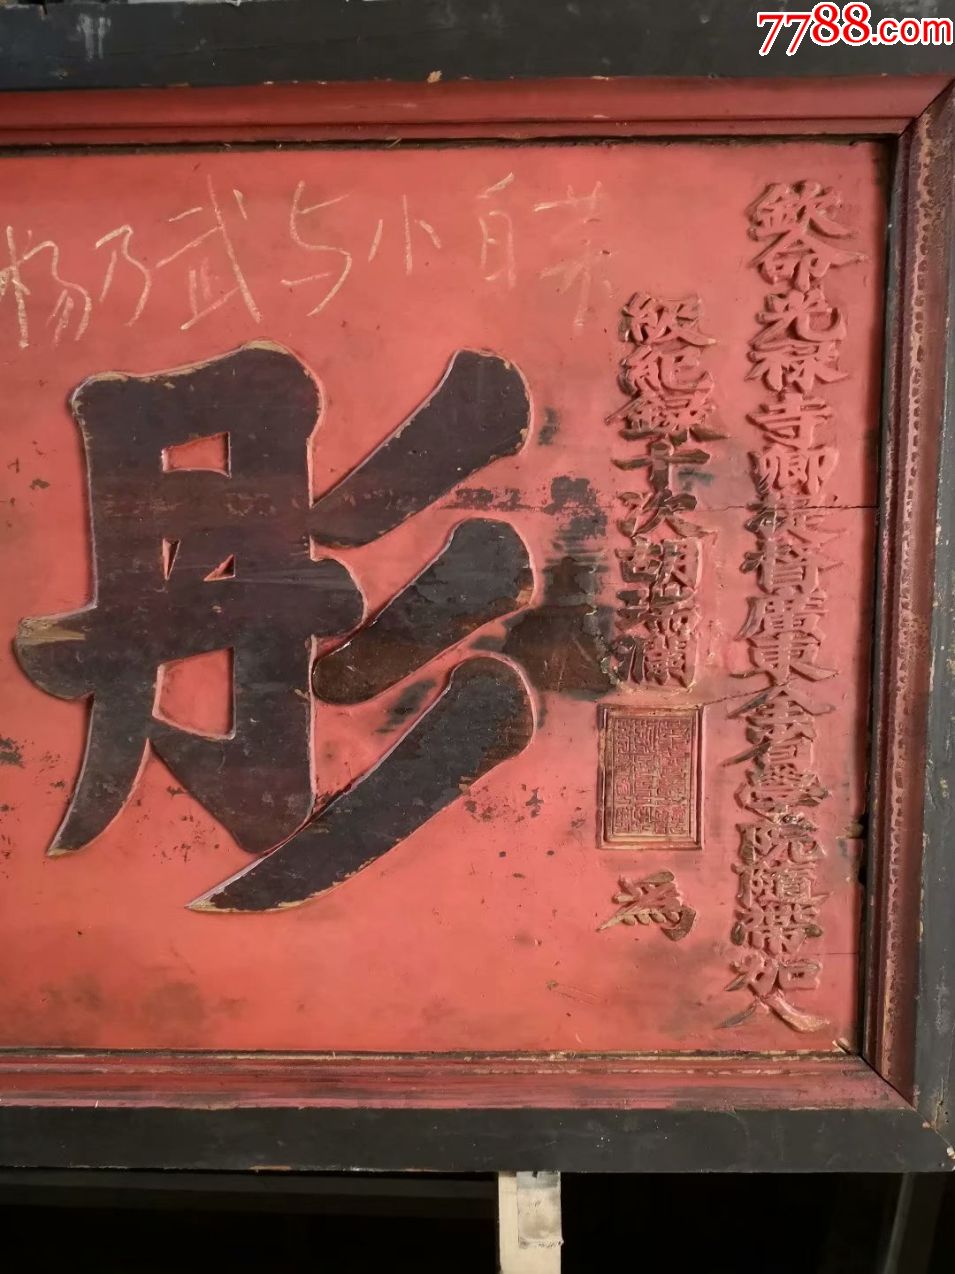 7788.com
杨乃武与小白菜
欽命光祿寺卿提督廣東全省學院隨帶加八
級紀錄十次胡瑞瀾
為
彤